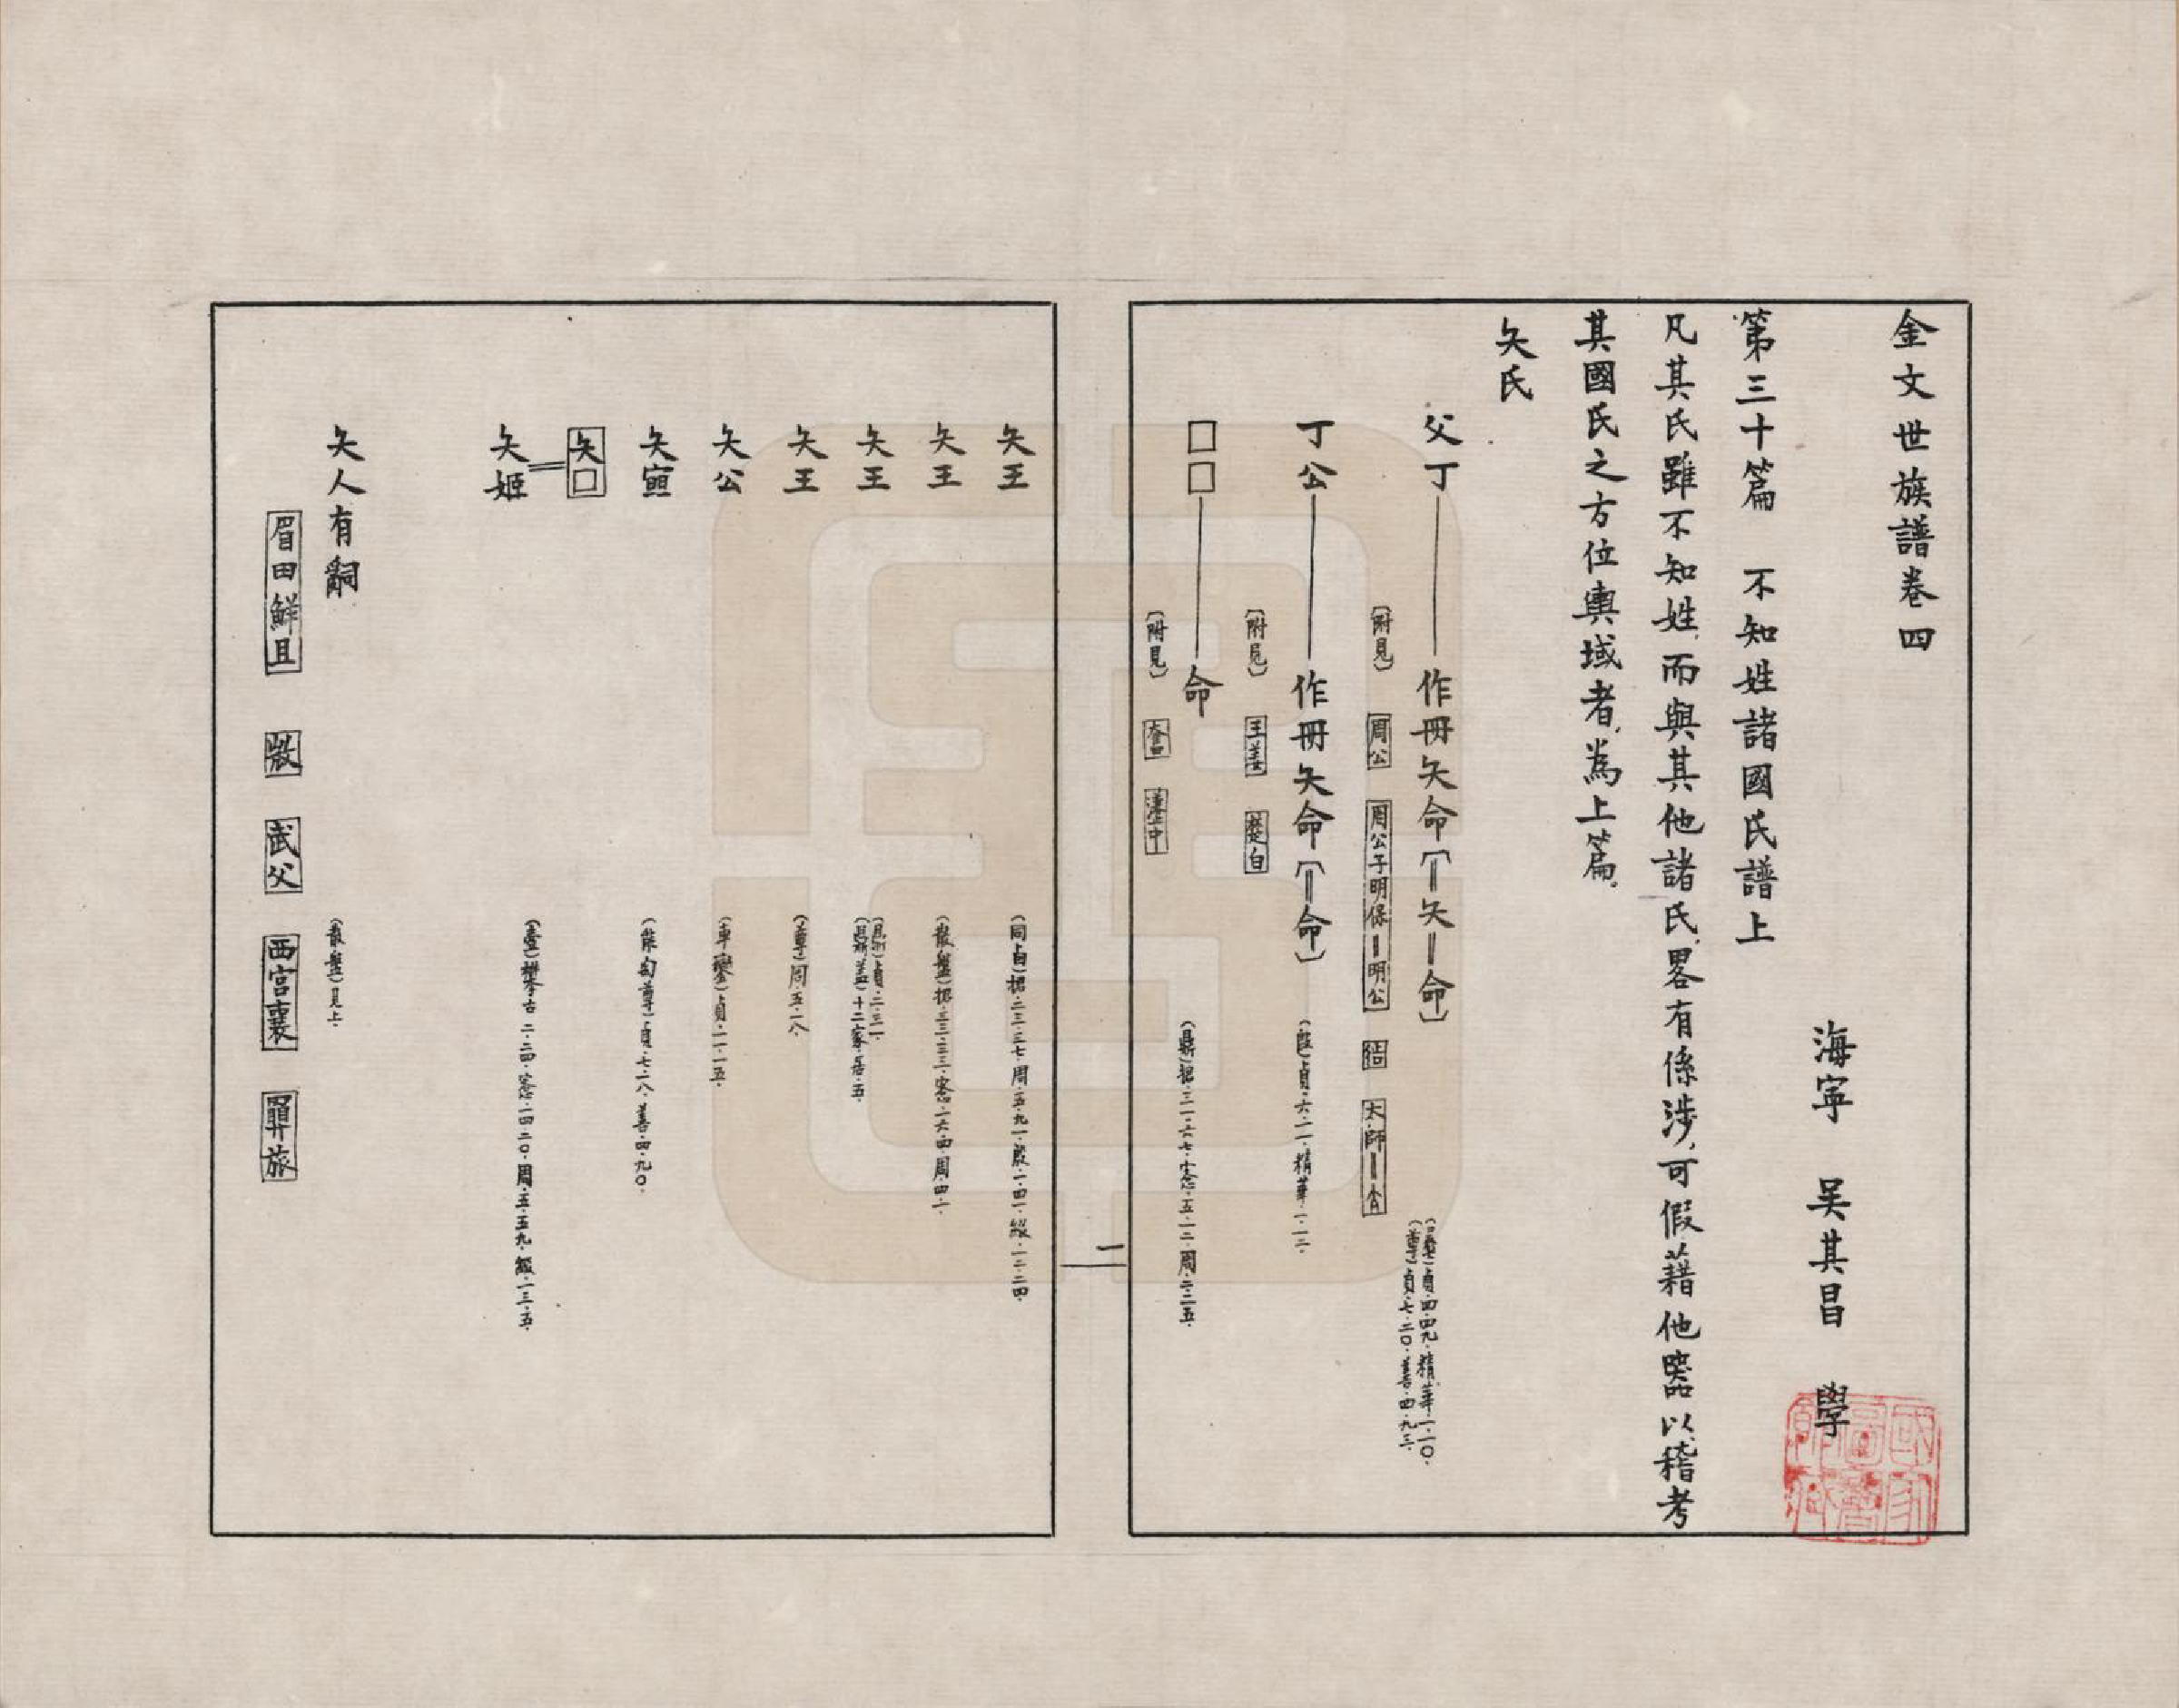 金文世族譜卷四
海寧 吴其昌 學
第三十篇 不知姓諸國氏譜上
凡其氏雖不知姓,而與其他諸氏,畧有係涉,可假藉他器以稽考
其國氏之方位輿域者,為上篇.
夨氏
父丁——作冊夨命〔=夨=命〕
貞·四·四九·精華·一·一〇·
(尊)貞·七·二〇·善·四·九三·
〔附見〕 周公 周公子明保=明公 𢓊 大師=
丁公——作冊夨命〔=命〕 貞·六·一一·精華·一·一二·
〔附見〕 王姜 楚白
□□——命 (鼎)攈·三一·六七·愙·五·一二·周·二·二五·
〔附見〕 中
二
夨王 (同卣)攈·二三·三七·周·五·九一·殷·一·四一·綴·一二·二四·
夨王 (散盤)攈·三三·三三·愙·一六·四·周·四·一·
夨王 貞·二·三一·
(鼎蓋)十二家·居·五·
夨王 (尊)周·五·一八·
夨公 (車鑾)貞·一一·一五·
夨𡩜 尊)貞·七·一八·善·四·九〇·
夨□
夨姬 攀古·二·二四·愙·一四·二〇·周·五·五九·綴·一三·五·
夨人有嗣 (散盤)見上·
眉田鮮且 武父 西宮襄